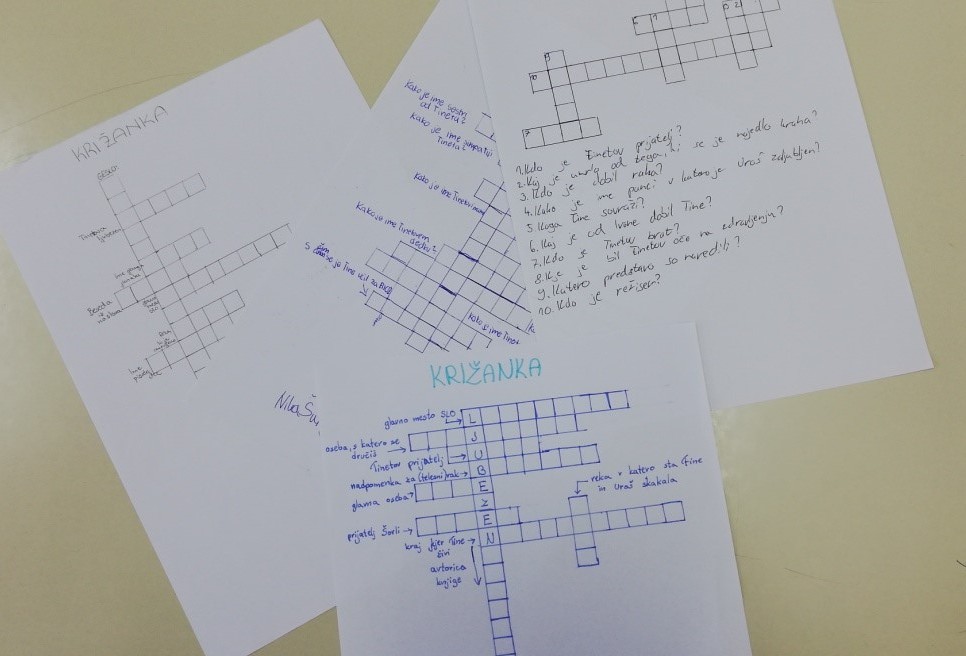 KRIŽANKA
Kako je ime sestri
od Tineta?
Kako je ime simpatiji
Tineta?
Kako je ime Tinetovi mami
Kako je ime Tinetovem
dedku?
Kako je ime Tinet
1. Kdo je Tinetov prijatelj?
2. Kaj je umrlo od tega, ki se je najedlo kruha?
3. Kdo je dobil raka?
4. Kako je ime punci v katero je Uroš zaljubljen?
5. Koga Tine sovraži?
6. Kaj je od Ivane dobil Tine?
7. Kdo je Tinetov brat?
8. Kje je bil Tinetov oče na zdravljenju?
9. Katero predstavo so naredili?
10. Kdo je režiser?
KRIŽANKA
glavno mesto SLO
oseba, s katero se
družiš
Tinetov prijatelj
nadpomenka za (telesni) rak
glavna oseba?
prijatelj Šorli
kraj kjer Tine
živi
avtorica
knjige
reka v katero sta Tine
in Uroš skakala
L
J
U
B
E
Z
E
N